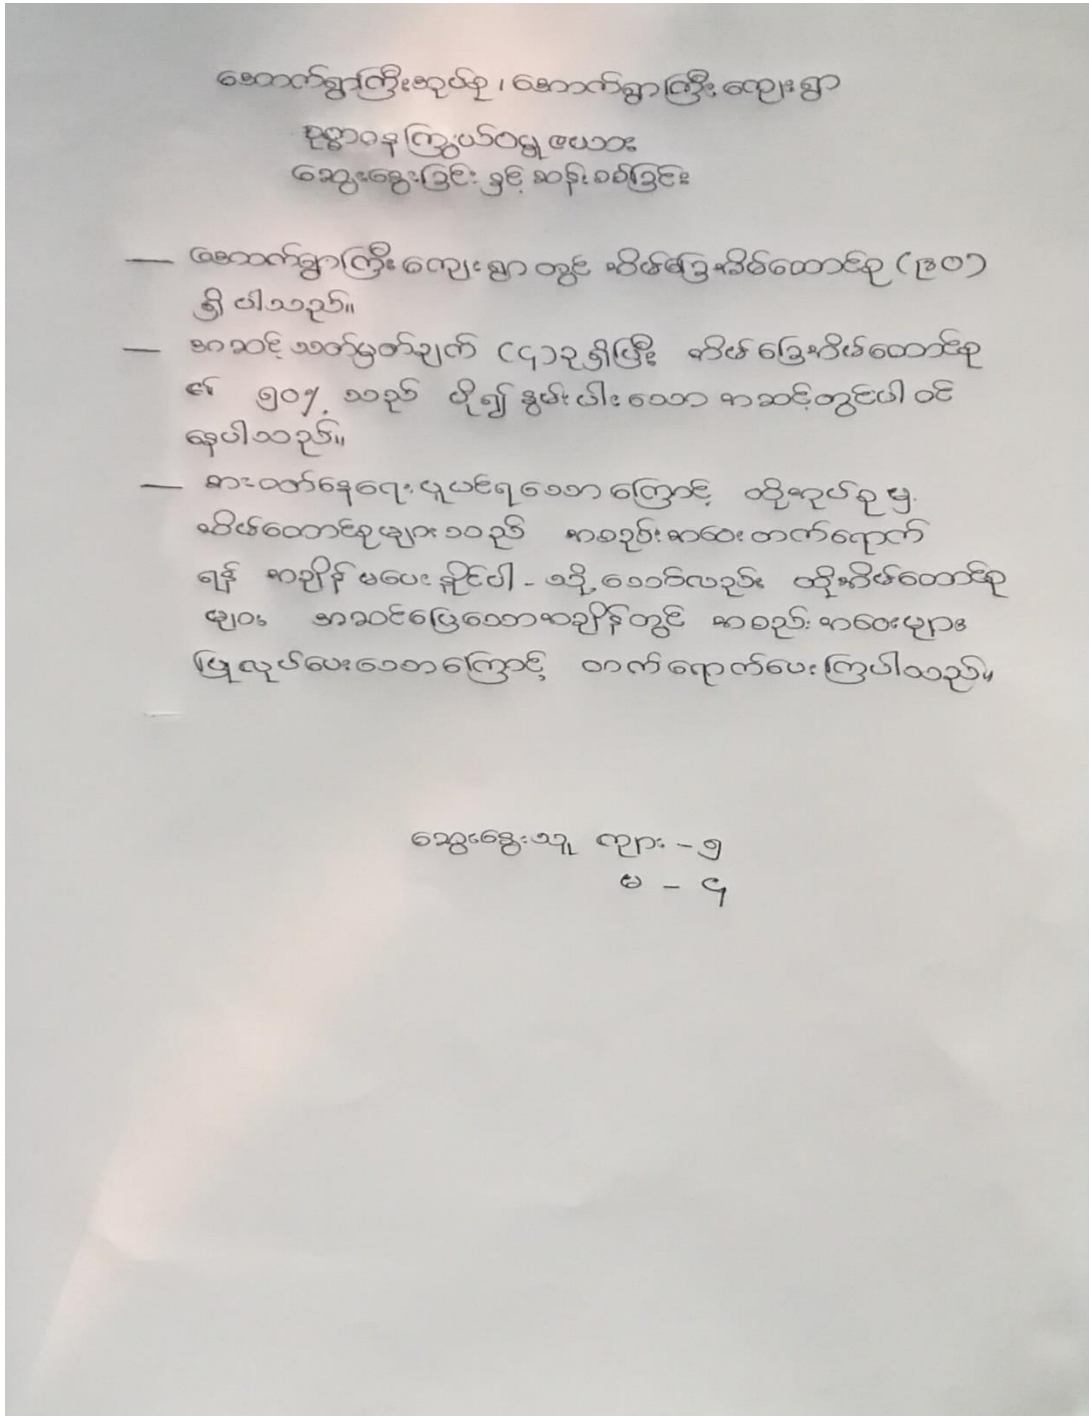 အောက်ရွာကြီးအုပ်စု၊ အောက်ရွာကြီးကျေးရွာ
စုစ္စာဝန ကြွယ်ဝမှု ဇယား
ဆွေးနွေးခြင်း နှင့် ဆန်းစစ်ခြင်း
— အောက်ရွာကြီးကျေးရွာ တွင် အိမ်ခြေအိမ်ထောင်စု (၃၀)
ရှိ ပါသည်။
— အဆင့် သတ်မှတ်ချက် (၄)ခုရှိပြီး အိမ်ခြေအိမ်ထောင်စု
၏ ၅၀% သည် ပို၍ နွမ်းပါးသော အဆင့်တွင်ပါ ဝင်
နေပါသည်။
— စားဝတ်နေရေး ပူပင်ရသော ကြောင့် ထိုအုပ်စု မှ
အိမ်ထောင်စုများ သည် အစည်းအဝေး တက်ရောက်
ရန် အချိန် မပေး နိုင်ပါ - သို့သော်လည်း ထိုအိမ်ထောင်စု
များ အဆင်ပြေသောအချိန်တွင် အစည်းအဝေးများ
ပြုလုပ်ပေးသောကြောင့် တက်ရောက်ပေးကြပါသည်။
ဆွေးနွေးသူ ကျား - ၅
မ - ၄